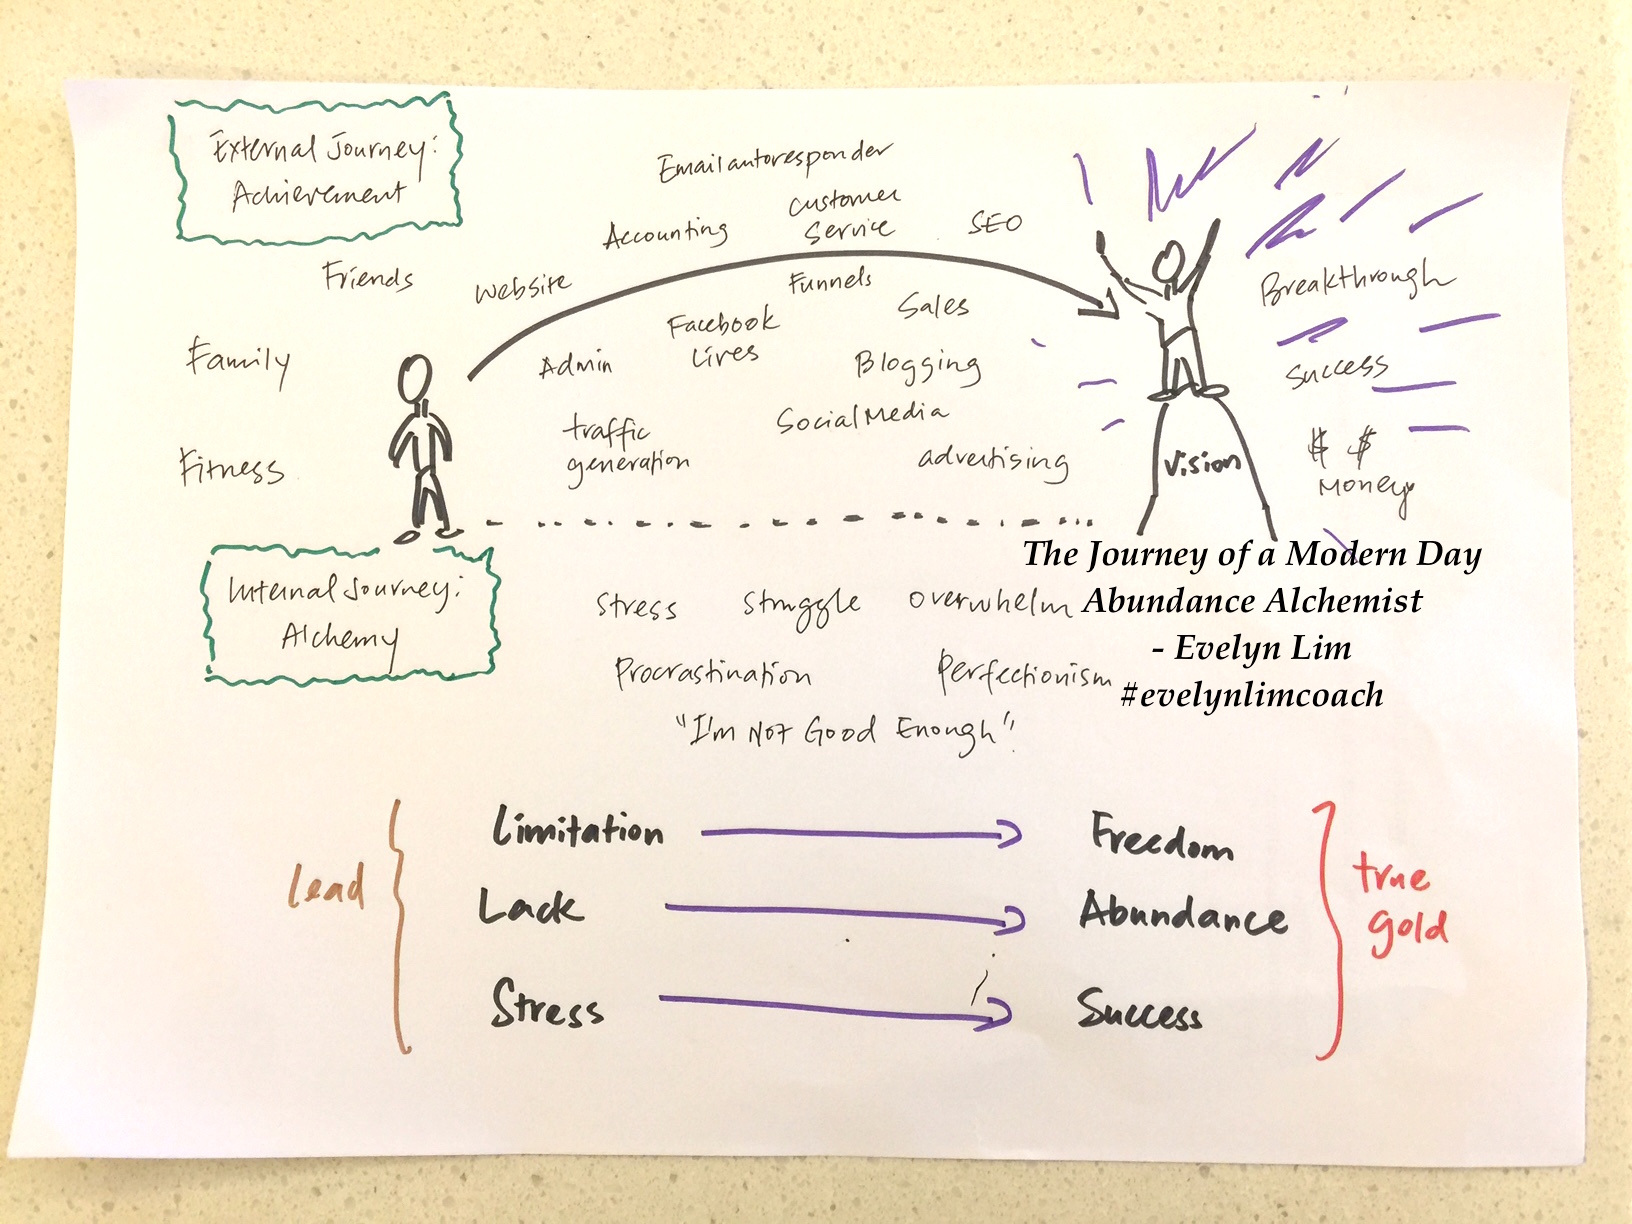 External Journey:
Achievement
Email autoresponder
Customer
Service
Accounting
SEO
Friends
Website
Funnels
Sales
Facebook
Lives
Family
Admin
Blogging
Social Media
traffic
generation
advertising
Fitness
Breakthrough
Success
$ $
Money
Vision
The Journey of a Modern Day
Abundance Alchemist
- Evelyn Lim
#evelynlimcoach
Internal Journey:
Alchemy
Stress Struggle Overwhelm
Procrastination Perfectionism
"I'm Not Good Enough"
lead
Limitation Freedom
Lack Abundance
Stress Success
true
gold